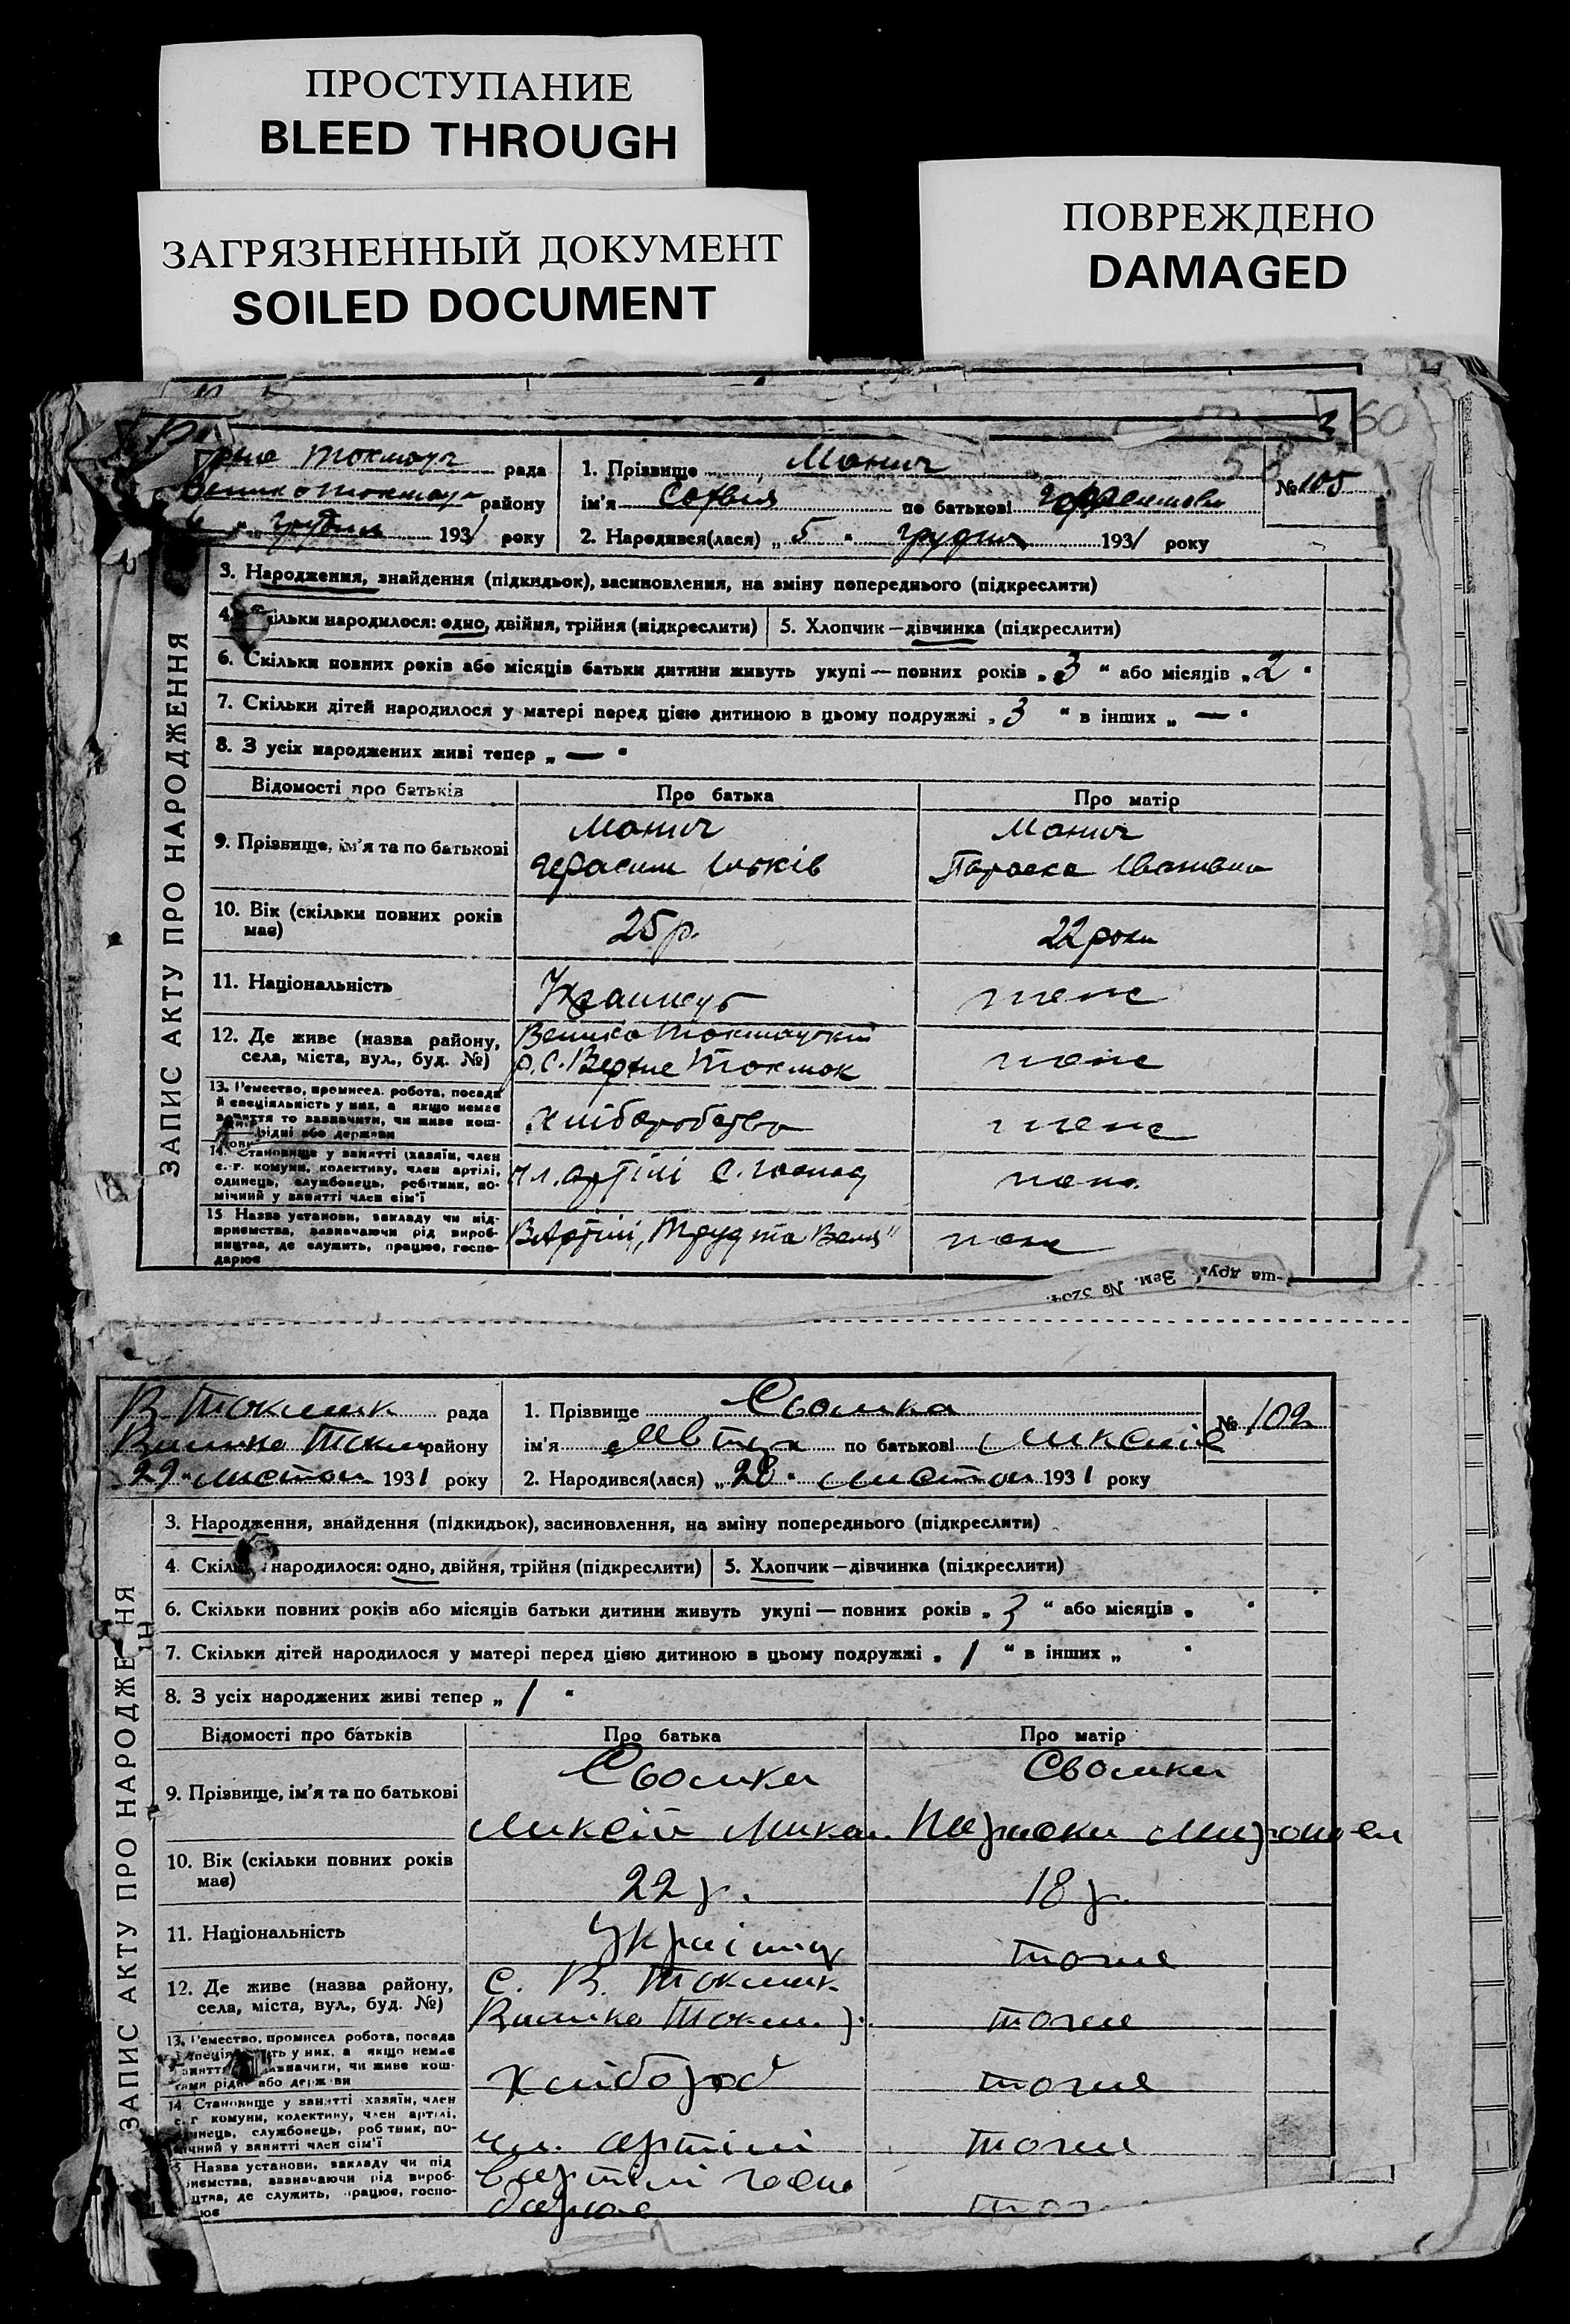 ПРОСТУПАНИЕ
BLEED THROUGH
ЗАГРЯЗНЕННЫЙ ДОКУМЕНТ
SOILED DOCUMENT
ПОВРЕЖДЕНО
DAMAGED
60
рада
району
1931 року
1. Прізвище Манич
ім'я София по батькові
№ 105
2. Народився(лася) „5“ грудня 1931 року
ЗАПИС АКТУ ПРО НАРОДЖЕННЯ
3. Народження, знайдення (підкидьок), засиновлення, на зміну попереднього (підкреслити)
4. Скільки народилося: одно, двійня, трійня (підкреслити) 5. Хлопчик — дівчинка (підкреслити)
6. Скільки повних років або місяців батьки дитини живуть укупі — повних років „3“ або місяців „2“
7. Скільки дітей народилося у матері перед цією дитиною в цьому подружжі „3“ в інших „—“
8. З усіх народжених живі тепер „—“
Відомості про батьків Про батька Про матір
9. Прізвище, ім'я та по батькові
Манич Манич
Герасим Параска Ивановна
10. Вік (скільки повних років має) 25 р. 22 роки
11. Національність
12. Де живе (назва району, села, міста, вул., буд. №)
р. с. Верхне Токмак
13. Ремество, промисел, робота, посада й спеціяльність у них, а якщо немає заняття то зазначити, чи живе коштами рідні або держави
14. Становище у занятті (хазяїн, член с.-г. комуни, колективу, член артілі, одинець, службовець, робітник, помічний у занятті член сім'ї
чл. артілі с. господ
15. Назва установи, закладу чи підприємства, зазначаючи рід виробництва, де служить, працює, господарює
В Артілі „Труд та Воля“
Зам. №
В Токмак рада
району
29 листоп 1931 року
1. Прізвище
ім'я по батькові
№ 102
2. Народився(лася) „28“ листоп 1931 року
ЗАПИС АКТУ ПРО НАРОДЖЕННЯ
3. Народження, знайдення (підкидьок), засиновлення, на зміну попереднього (підкреслити)
4. Скільки народилося: одно, двійня, трійня (підкреслити) 5. Хлопчик — дівчинка (підкреслити)
6. Скільки повних років або місяців батьки дитини живуть укупі — повних років „3“ або місяців „ “
7. Скільки дітей народилося у матері перед цією дитиною в цьому подружжі „1“ в інших „ “
8. З усіх народжених живі тепер „1“
Відомості про батьків Про батька Про матір
9. Прізвище, ім'я та по батькові
10. Вік (скільки повних років має) 22 р. 18 р.
11. Національність
Україн тоже
12. Де живе (назва району, села, міста, вул., буд. №)
с. В. Токмак
Велико Токм. р. тоже
13. Ремество, промисел робота, посада й спеціяльність у них, а якщо немає заняття то зазначити, чи живе коштами рідні або держави
хлібороб тоже
14. Становище у занятті хазяїн, член с. г. комуни, колективу, член артілі, одинець, службовець, робітник, помічний у занятті член сім'ї
чл. артілі тоже
15. Назва установи, закладу чи підприємства, зазначаючи рід виробництва, де служить, працює, господарює
в артілі госпо
дарює